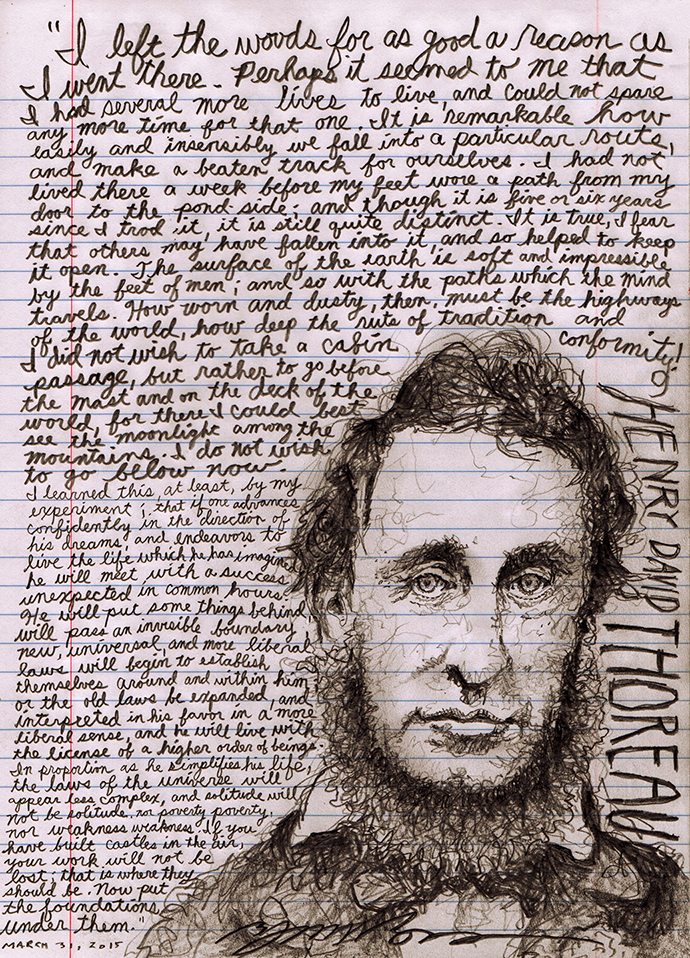 "I left the woods for as good a reason as
I went there. Perhaps it seemed to me that
I had several more lives to live, and could not spare
any more time for that one. It is remarkable how
easily and insensibly we fall into a particular route,
and make a beaten track for ourselves. I had not
lived there a week before my feet wore a path from my
door to the pond-side; and though it is five or six years
since I trod it, it is still quite distinct. It is true, I fear
that others may have fallen into it, and so helped to keep
it open. The surface of the earth is soft and impressible
by the feet of men; and so with the paths which the mind
travels. How worn and dusty, then, must be the highways
of the world, how deep the ruts of tradition and
conformity!
I did not wish to take a cabin
passage, but rather to go before
the mast and on the deck of the
world, for there I could best
see the moonlight among the
mountains. I do not wish
to go below now.
I learned this, at least, by my
experiment; that if one advances
confidently in the direction of
his dreams, and endeavors to
live the life which he has imagined,
he will meet with a success
unexpected in common hours.
He will put some things behind,
will pass an invisible boundary;
new, universal, and more liberal
laws will begin to establish
themselves around and within him;
or the old laws be expanded, and
interpreted in his favor in a more
liberal sense, and he will live with
the license of a higher order of beings.
In proportion as he simplifies his life,
the laws of the universe will
appear less complex, and solitude will
not be solitude, nor poverty poverty,
nor weakness weakness. If you
have built castles in the air,
your work will not be
lost; that is where they
should be. Now put
the foundations
under them."
MARCH 31, 2015
HENRY DAVID THOREAU